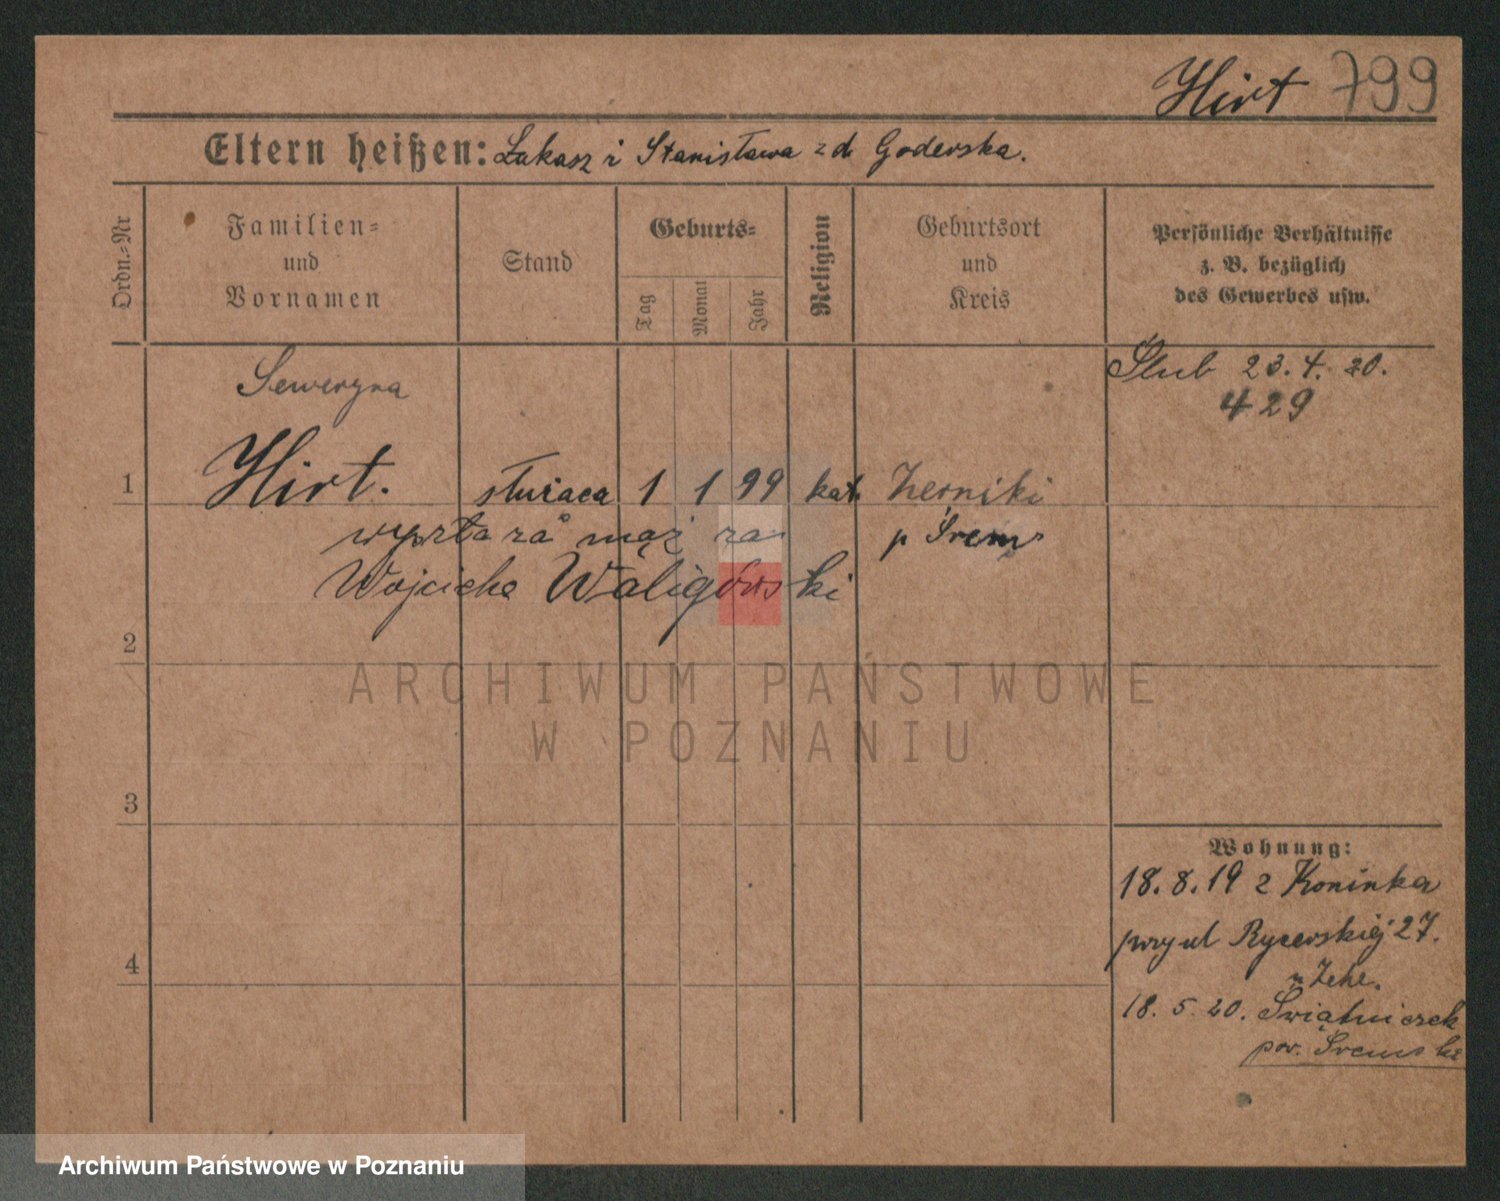 Hirt 799
Eltern heißen: Łukasz i Stanisława z d. Goderska.
Ordn.-Nr
Familien- und Vornamen
Stand
Geburts-
Tag
Monat
Jahr
Religion
Geburtsort und Kreis
Persönliche Verhältnisse z. B. bezüglich des Gewerbes usw.
Seweryna
Ślub 23.4.20.
429
1 Hirt. służaca 1 1 99 kat. Zerniki
wyszła za mąż za p Śrem
Wojciecha Waligórski
2
ARCHIWUM PAŃSTWOWE
W POZNANIU
3
Wohnung:
18.8.19 z Koninka
przy ul Rycerskiéj 27.
4
18.5.20. Świątniczek
pow. Śremski
Archiwum Państwowe w Poznaniu